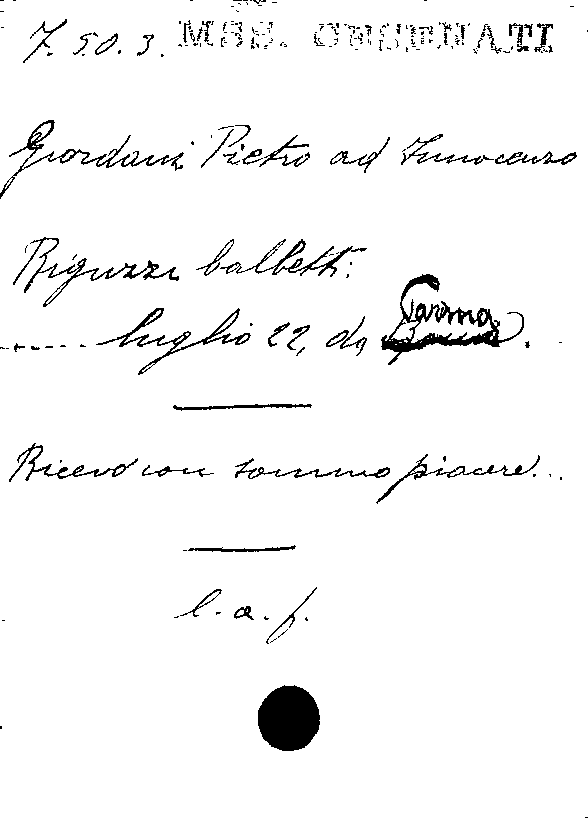 7. 50. 3. MSS. CESENATI
Giordani Pietro ad Innocenzo
Riguzzi balbetti:
..... luglio 22, da Parma.
Ricevo con sommo piacere...
l. a. f.